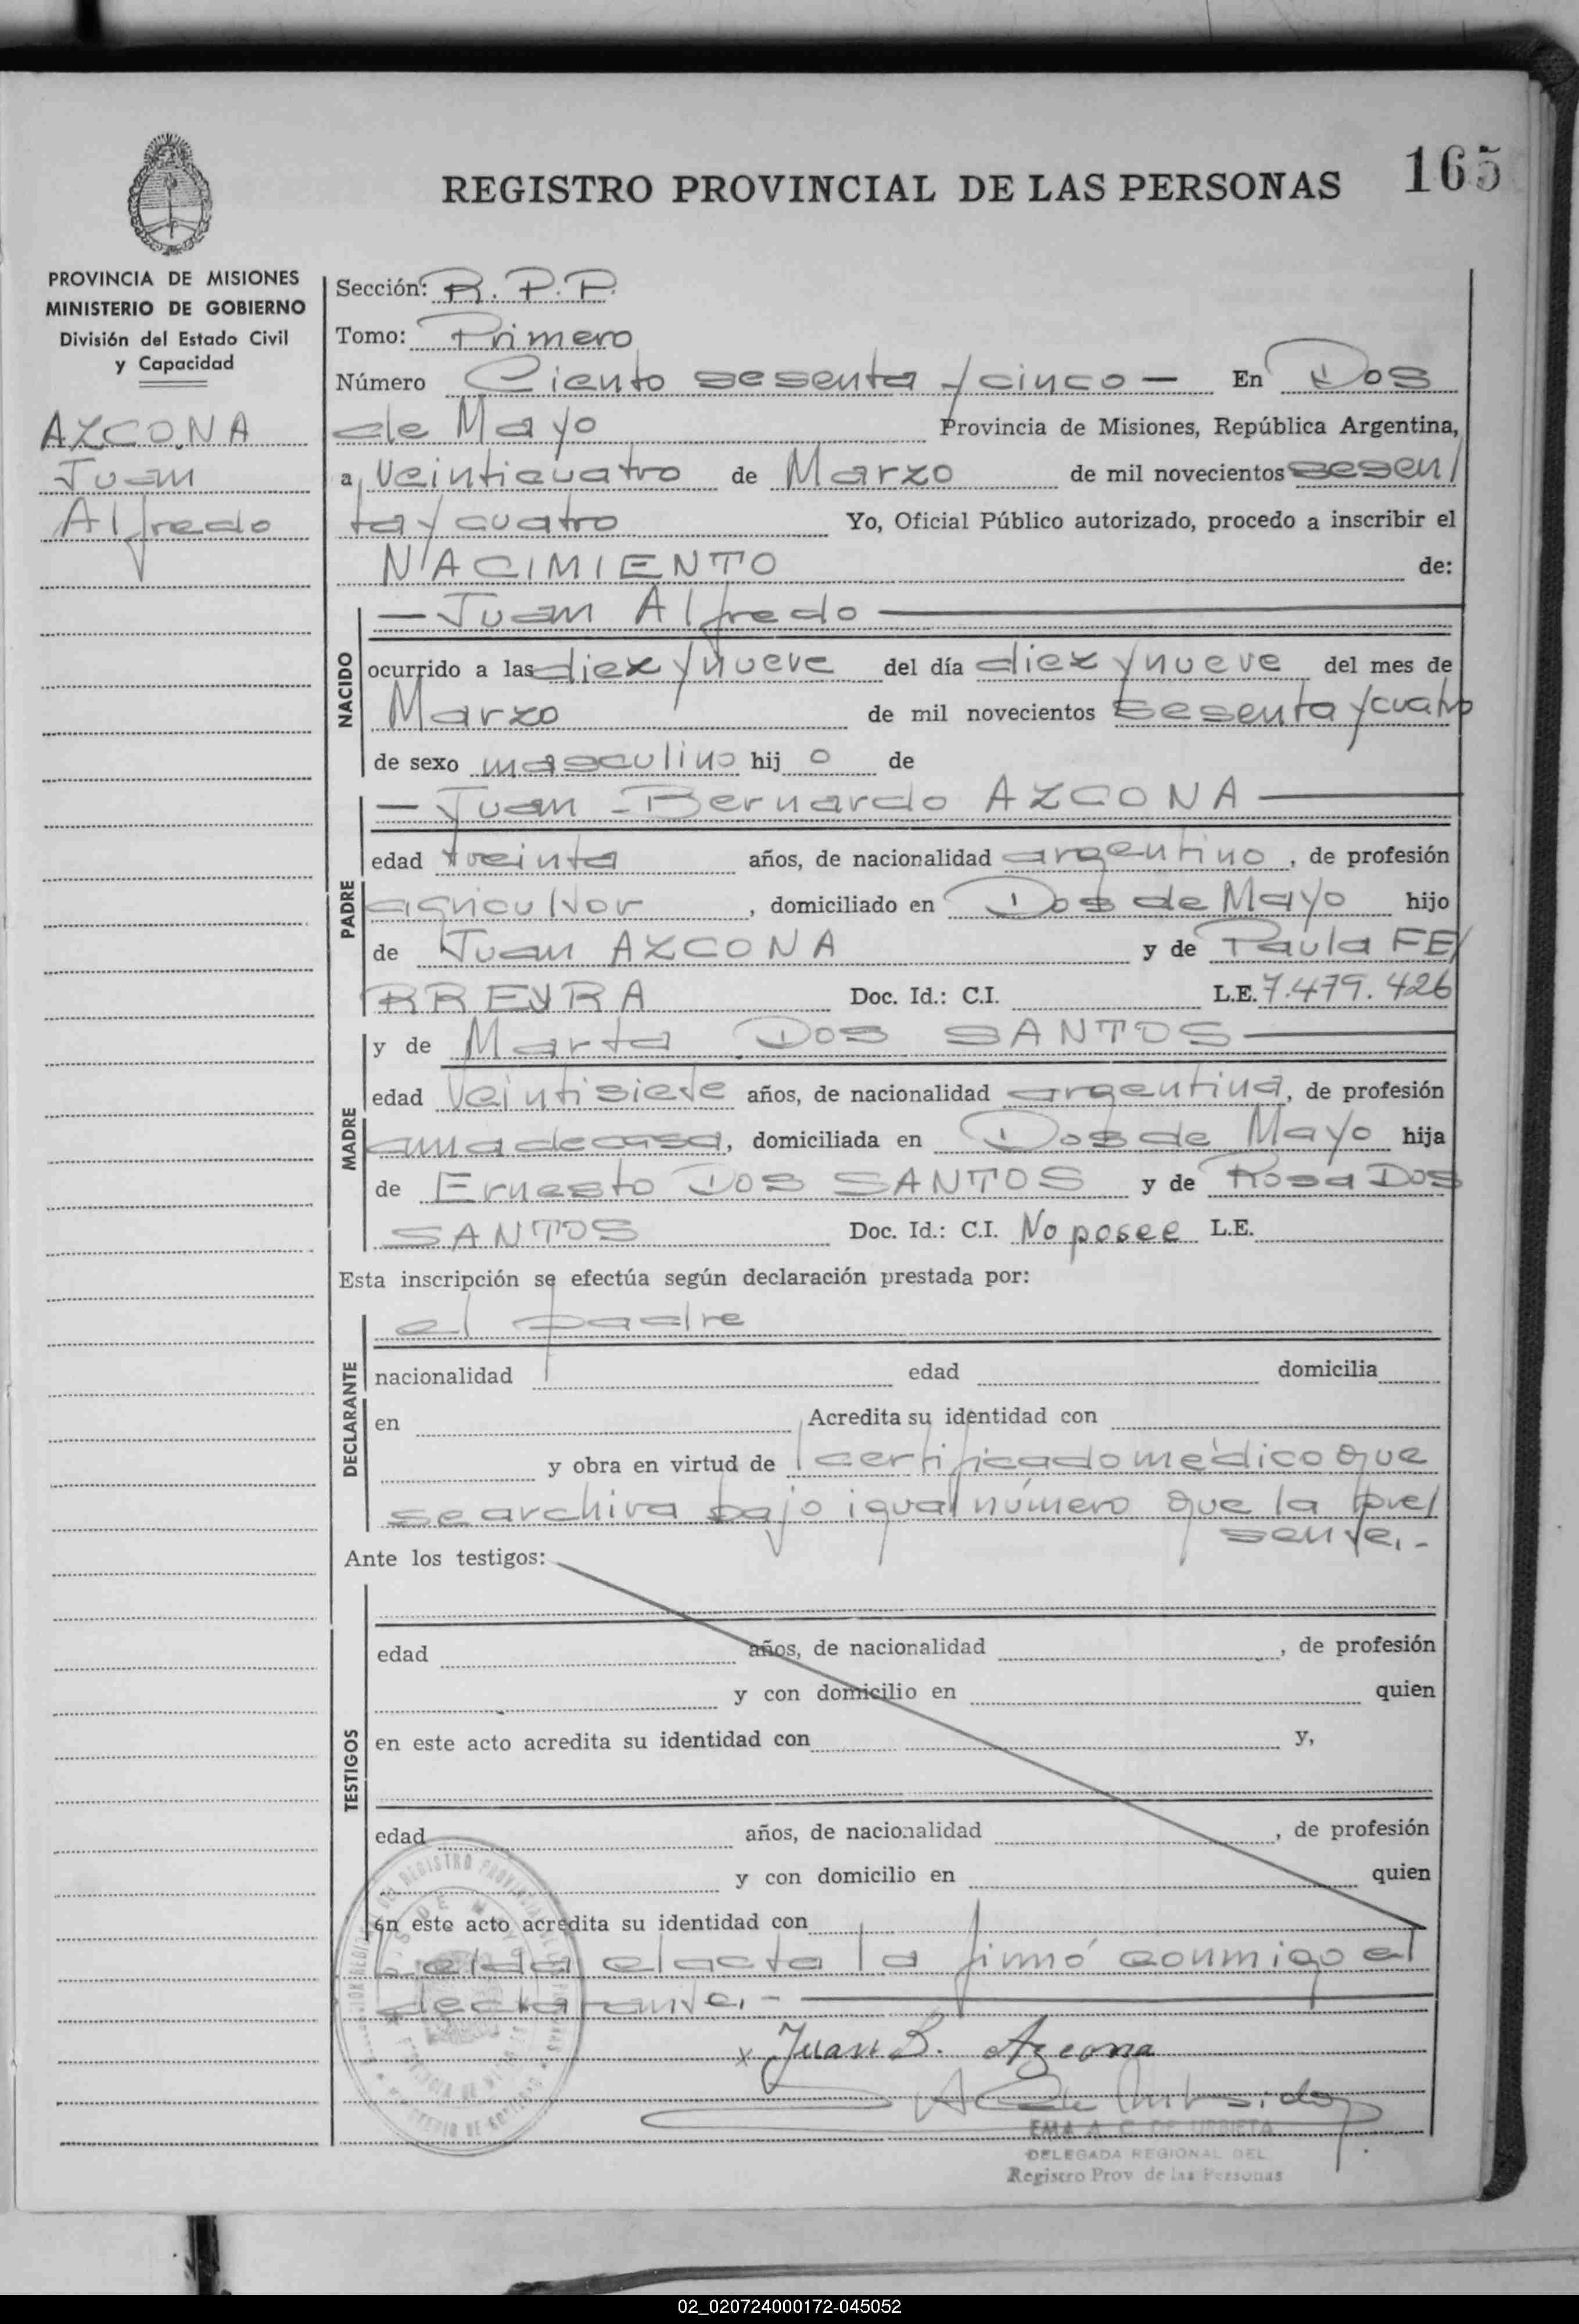 REGISTRO PROVINCIAL DE LAS PERSONAS 165
PROVINCIA DE MISIONES
MINISTERIO DE GOBIERNO
División del Estado Civil
y Capacidad
AZCONA
Juan
Alfredo
Sección: R. P. P.
Tomo: Primero
Número Ciento sesenta y cinco — En Dos
de Mayo Provincia de Misiones, República Argentina,
a veinticuatro de Marzo de mil novecientos sesen/
ta y cuatro Yo, Oficial Público autorizado, procedo a inscribir el
NACIMIENTO de:
NACIDO
— Juan Alfredo —
ocurrido a las diez y nueve del día diez y nueve del mes de
Marzo de mil novecientos sesenta y cuatro
de sexo masculino hij o de
PADRE
— Juan Bernardo AZCONA —
edad treinta años, de nacionalidad argentino, de profesión
agricultor, domiciliado en Dos de Mayo hijo
de Juan AZCONA y de Paula FE/
RREYRA Doc. Id.: C.I. L.E. 7.479.426
MADRE
y de Marta DOS SANTOS —
edad veintisiete años, de nacionalidad argentina, de profesión
ama de casa, domiciliada en Dos de Mayo hija
de Ernesto DOS SANTOS y de Rosa DOS
SANTOS Doc. Id.: C.I. No posee L.E.
Esta inscripción se efectúa según declaración prestada por:
DECLARANTE
el padre
nacionalidad edad domicilia
en Acredita su identidad con
y obra en virtud de certificado médico que
se archiva bajo igual número que la pre/
sente.-
Ante los testigos:
TESTIGOS
edad años, de nacionalidad , de profesión
y con domicilio en quien
en este acto acredita su identidad con y,
edad años, de nacionalidad , de profesión
y con domicilio en quien
en este acto acredita su identidad con
Leída el acta la firmó conmigo el
declarante.- —
x Juan B. Azcona
EMA A. C. DE URBIETA
DELEGADA REGIONAL DEL
Registro Prov de las Personas
02_020724000172-045052